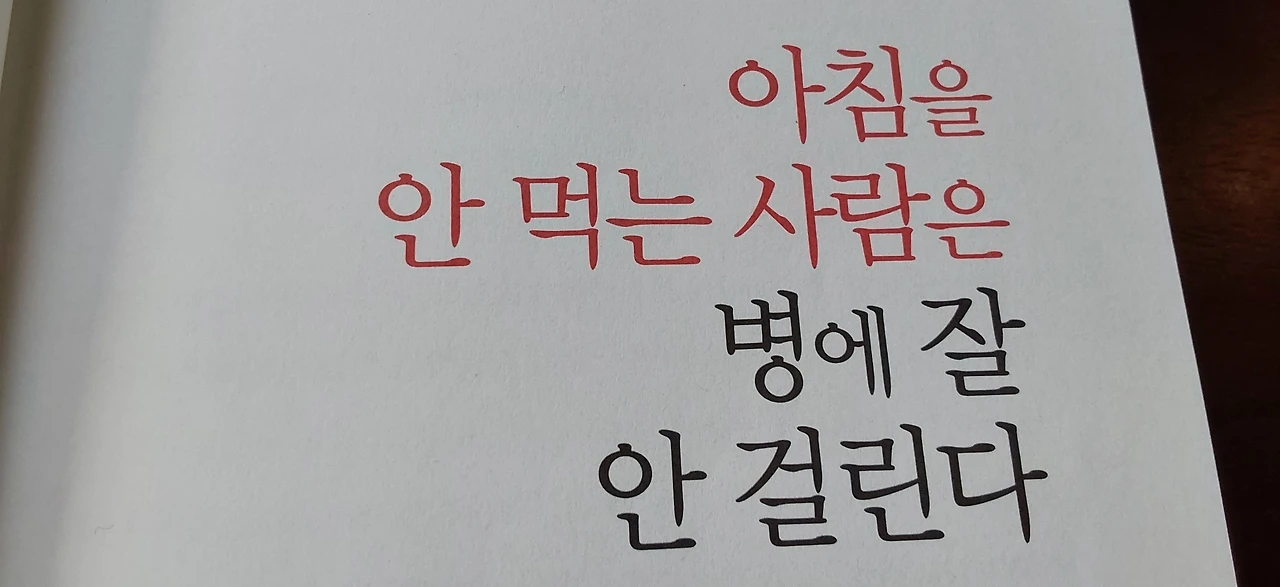 아침을
안 먹는 사람은
병에 잘
안 걸린다